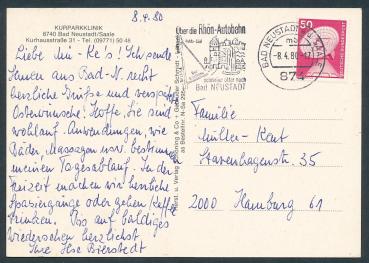 8.4.80
KURPARKKLINIK
8740 Bad Neustadt/Saale
Kurhausstraße 31 · Tel. (09771) 50 48
Liebe Mü-Ke's! Ich sende
Ihnen aus Bad-N. recht
herzliche Grüße und verspät.
Osterwünsche! Hoffe, Sie sind
wohlauf. Anwendungen, wie
Bäder, Massagen usw. bestimmen
meinen Tagesablauf. In der
Freizeit machen wir herrliche
Spaziergänge oder gehen Kaffee
trinken. Bis auf baldiges
Wiedersehen herzlichst
Ihre Ilse Bierstedt
Über die Rhön-Autobahn
schneller nach
Bad NEUSTADT
BAD NEUSTADT A D SAALE
-8.4.80-
874
50
DEUTSCHE BUNDESPOST
Familie
Müller-Kent
Stavenhagenstr. 35
2000 Hamburg 61